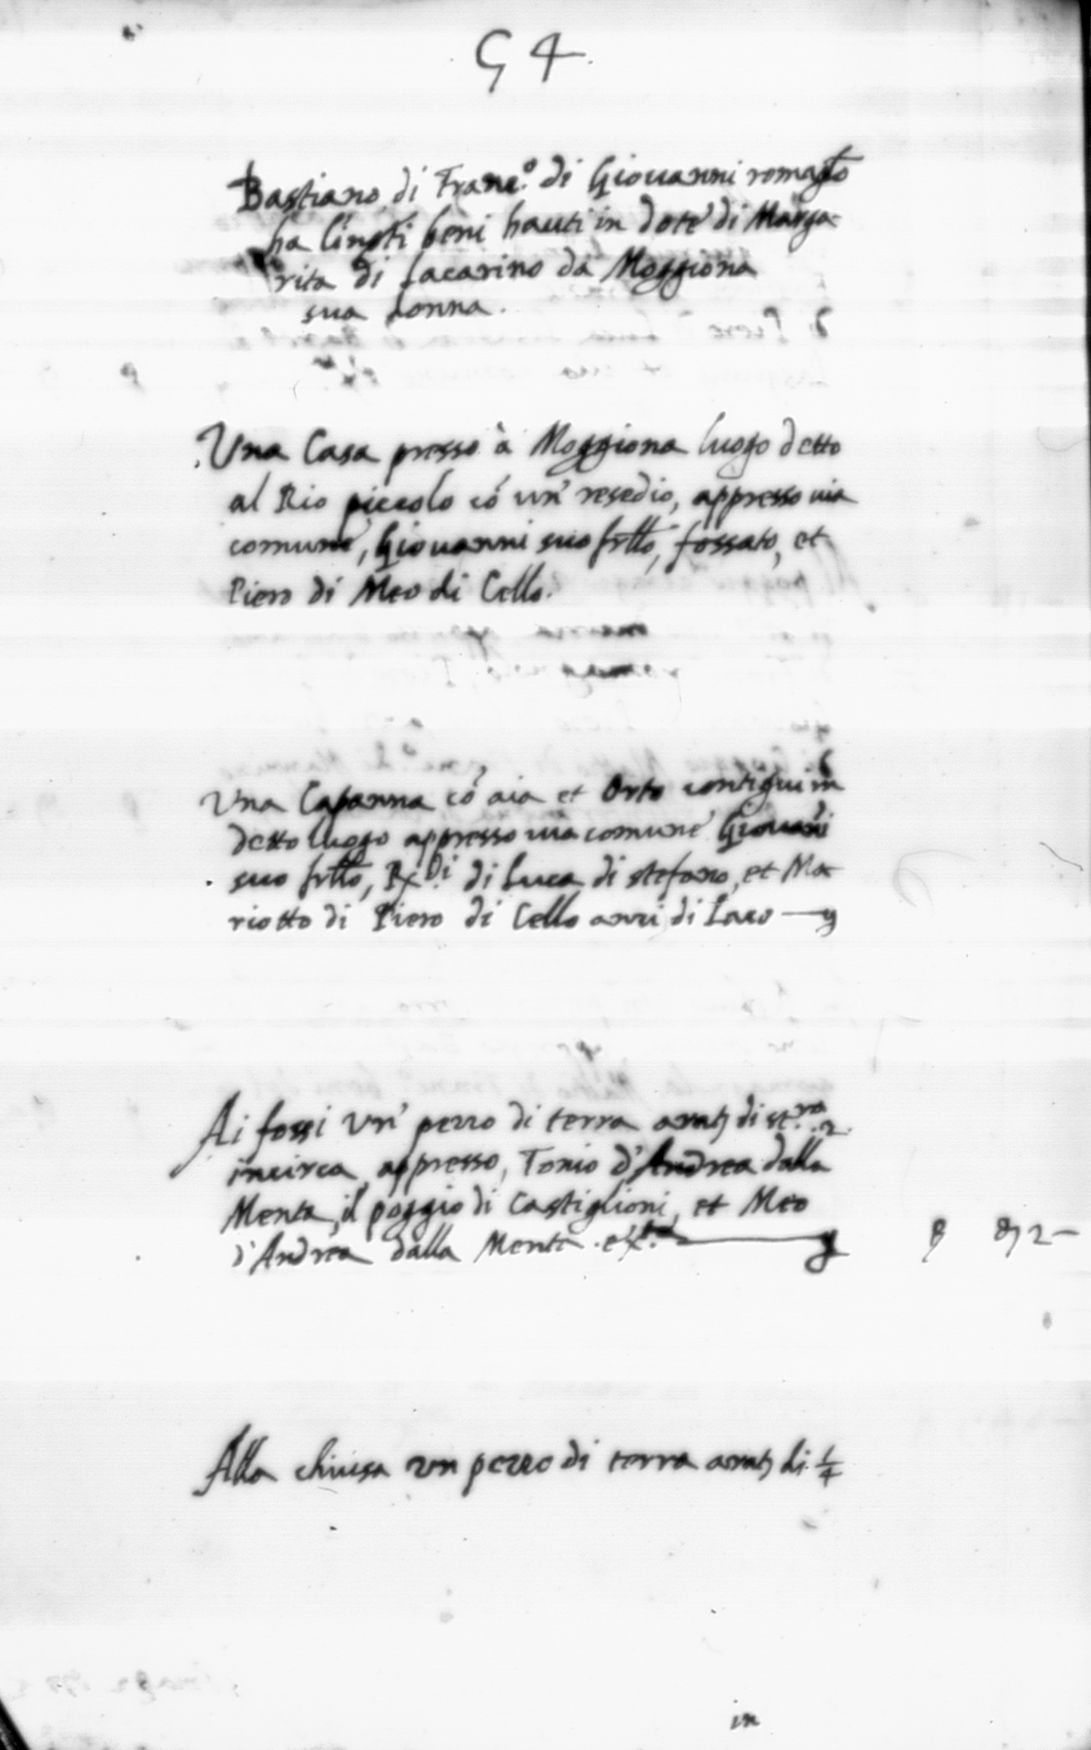 54.
Bastiano di Franc.o di Giouanni romag.lo
ha l'inp.ti beni hauti in dote di Marga-
rita di Lacarino da Moggiona
sua donna.
Una Casa presso à Moggiona luogo detto
al Rio piccolo cō un' resedio, appresso uia
comune, Giouanni suo frllo, fossato, et
Piero di Meo di Cello.
Una Capanna cō aia et Orto contigui in
detto luogo appresso uia comune Giouāni
suo frllo, di Luca di stefano, et Ma-
riotto di Piero di Cello anzi di Laco
Ai fossi un' pezzo di terra di st.ra 2.
incirca, appresso, Tonio d'Andrea dalla
Menta, il poggio di Castiglioni, et Meo
d'Andrea dalla Menta.
2-
Alla chiusa un pezzo di terra di 1/4
in